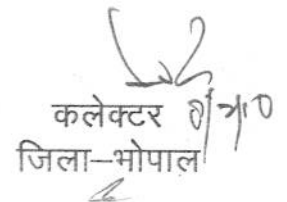 कलेक्टर
जिला–भोपाल